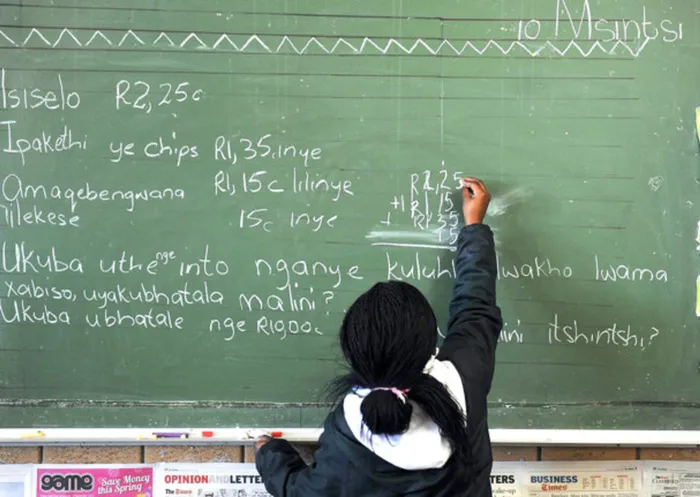 10 Msintsi
Isiselo R2,25c
Ipakethi ye chips R1,35c inye
Amaqebengwana R1,15c lilinye
iilekese 15c inye
R2,25
+ R1,15
R1,35
15
Ukuba uthe nge into nganye kuluhl lwakho lwama
xabiso, uyakubhatala malini?
Ukuba ubhatale nge R10,00c itshintshi?
game
Save Money
this Spring
OPINION AND LETTER
The Times
BUSINESS
Times